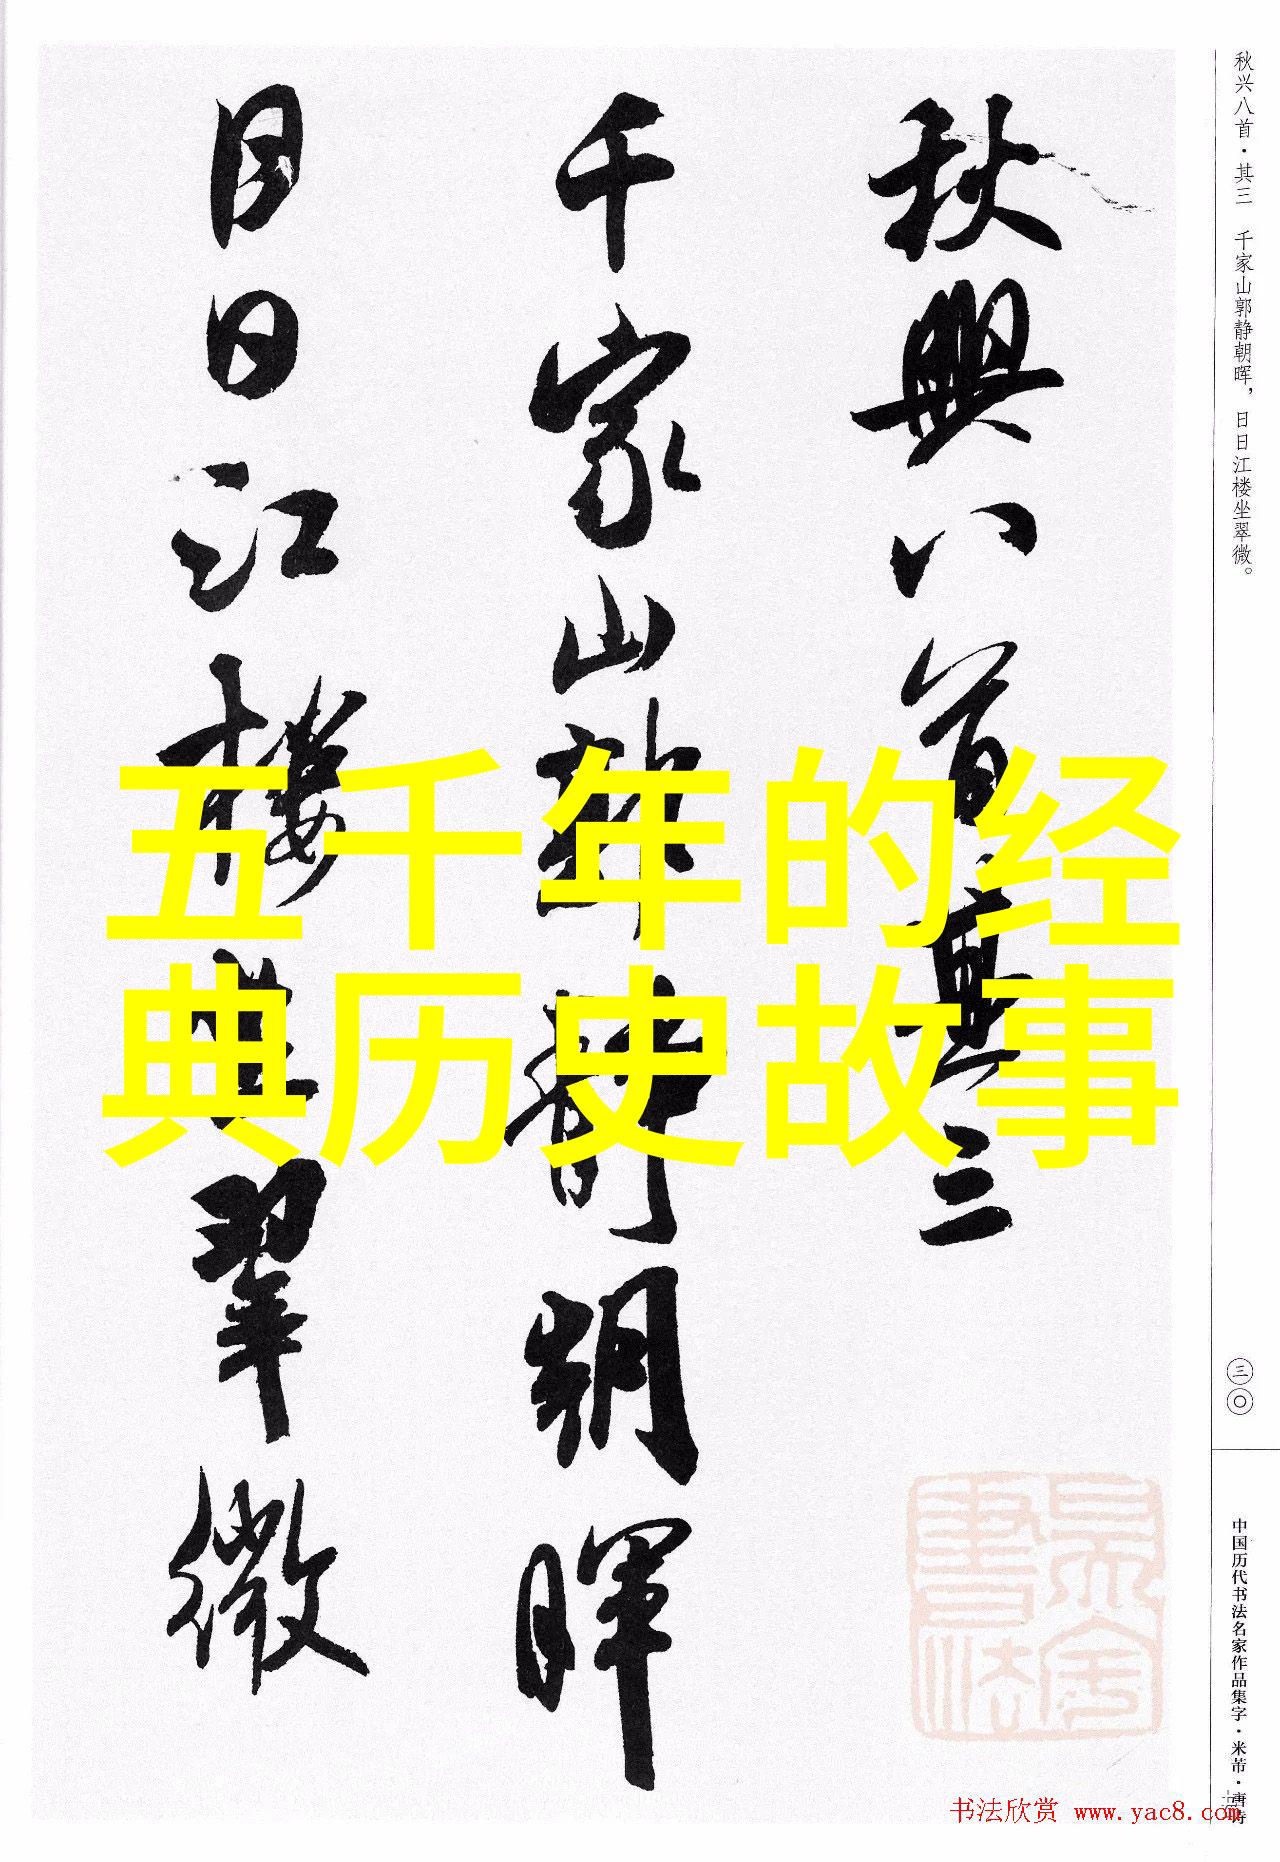 秋兴八首·其三 千家山郭静朝晖，日日江楼坐翠微。
三〇
中国历代书法名家作品集字·米芾·唐诗
秋興八首其三
千家山郭静朝暉
日日江樓坐翠微
五千年的经
典历史故事
书法欣赏 www.yac8.com